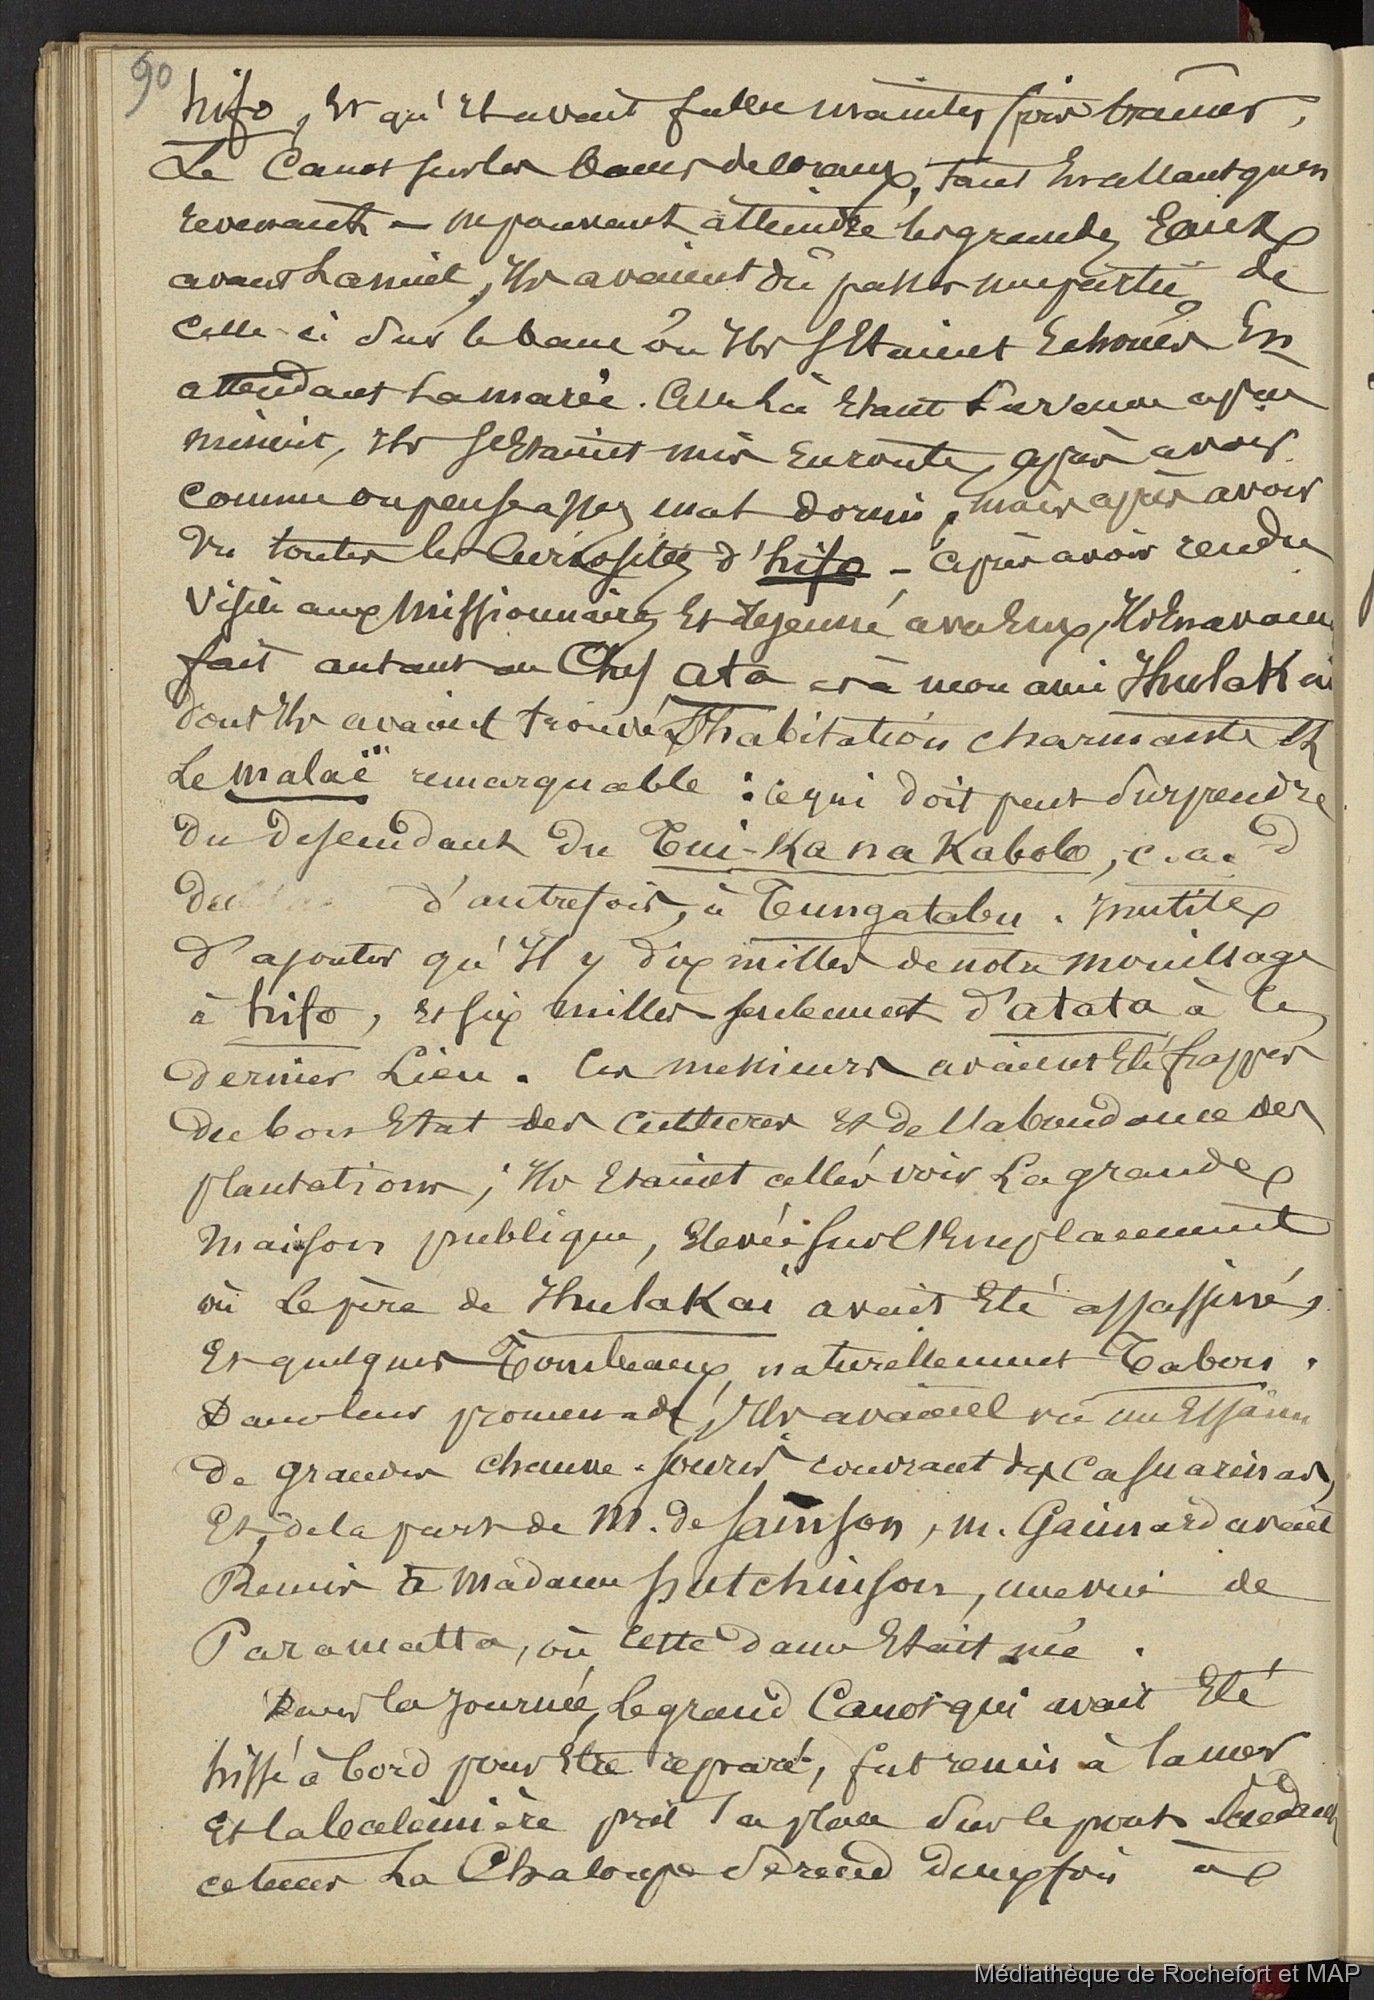 90
hifo, Et qu'Il avait fallu maintes fois trainer,
Le Canot sur les bancs de coraux, tant En allant qu'en
revenant — ne pouvant atteindre les grandes Eaux
avant La nuit, Ils avaient dû passer une partie de
Celle-ci sur le banc où Ils S'Etaient Echoués En
attendant La marée. Celle-là Etant survenue après
minuit, Ils S'Etaient mis En route, après avoir
comme on pense assez mal dormi, mais après avoir
vu toutes les Curiosités d'hifo — après avoir rendu
Visite aux Missionnaires Et dejeuné avec Eux, Ils En avaient
fait autant au Chef ata et à mon ami Thulakaï
dont Ils avaient trouvé L'habitation charmante Et
Le malaë remarquable : ce qui doit peut Surprendre
du descendant du Tui-Kana Kabolo, c.a.d
d'autrefois, à Tungatabu. Inutile
d'ajouter qu'Il y dix milles de notre mouillage
à hifo, et six milles seulement d'atata à ce
dernier Lieu. Ces messieurs avaient Eté frappés
du bon Etat des cultures Et de l'abondance des
plantations ; Ils Etaient allés voir La grande
maison publique, Elevée sur l'Emplacement
où Le père de Thulakaï avait Eté assassiné,
Et quelques Tombeaux naturellement Tabou.
Dans leur promenade, Ils avaient vu un Essaim
de grandes chauve-souris couvrant des Casuarinas,
Et, de la part de M. de Sainson, M. Gaimard avait
Remis à Madame hutchinson, une vue de
Paramatta, où cette dame Etait née.
Dans la journée, Le grand Canot qui avait Eté
hissé à bord pour être réparé, fut remis à la mer
Et la baleinière prit sa place sur le pont.
ce temps La Chaloupe se rend deux fois à
Médiathèque de Rochefort et MAP